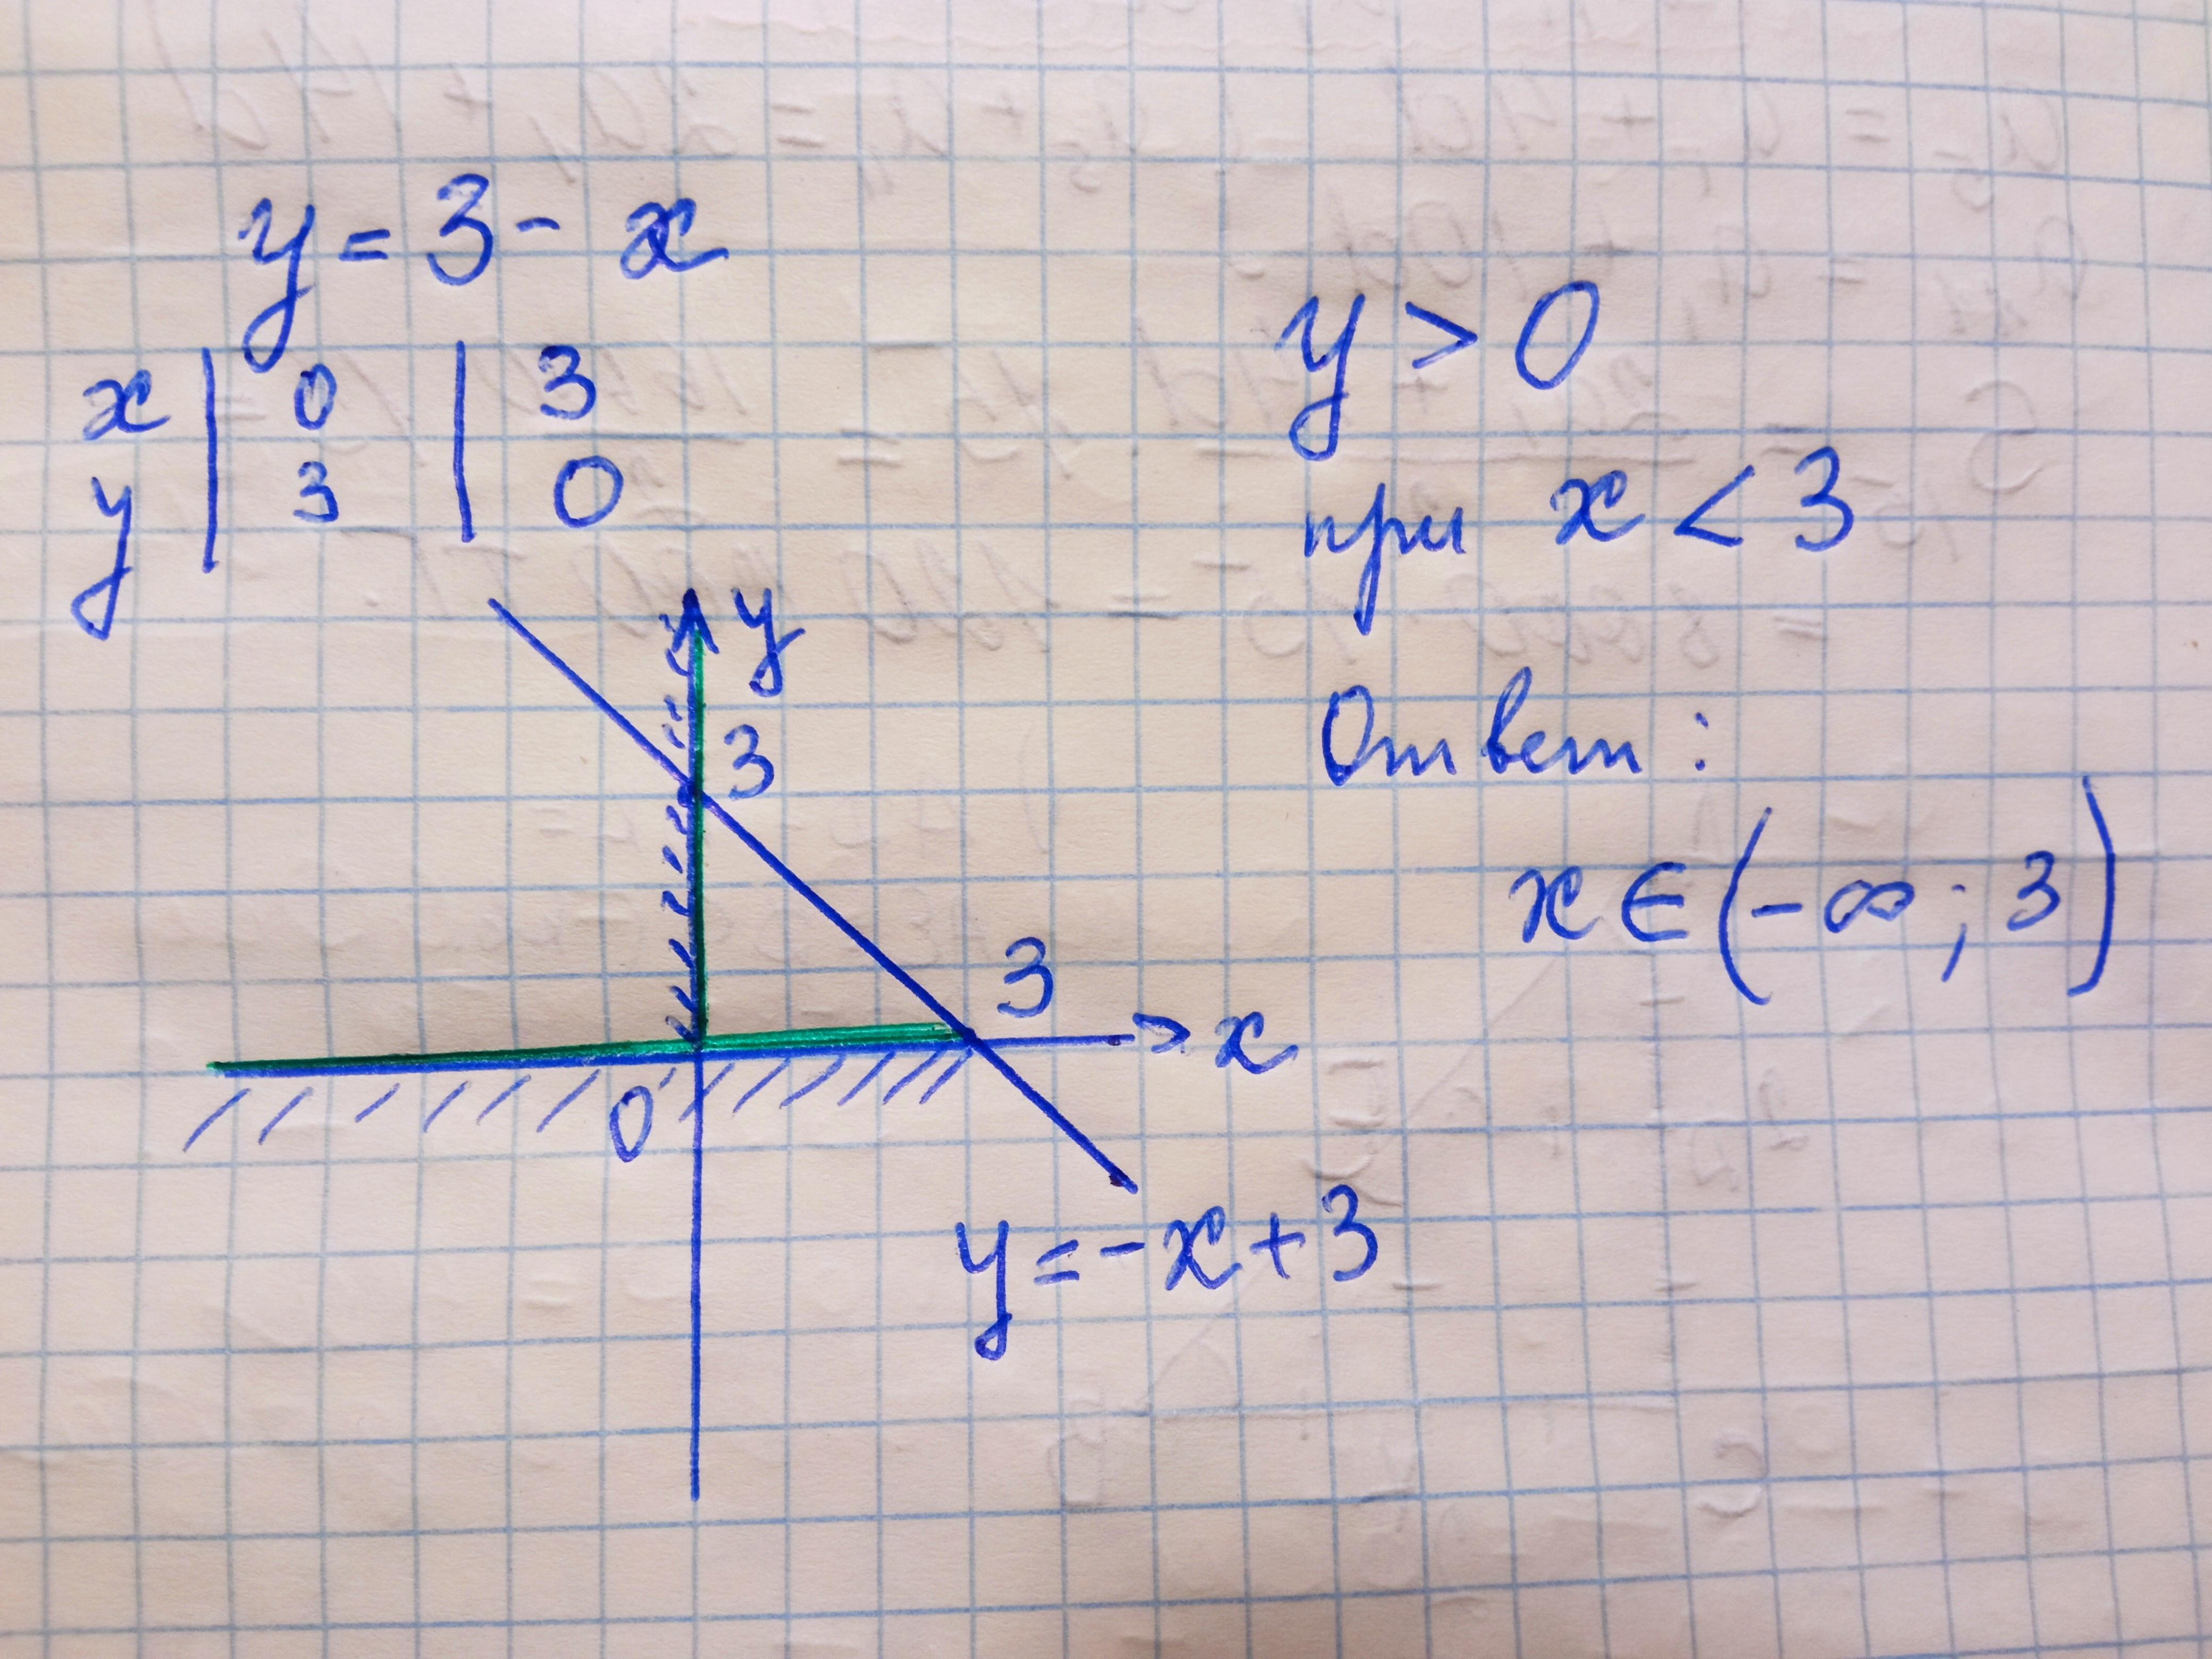 y = 3 - x
x | 0 | 3
y | 3 | 0
y > 0
при x < 3
Ответ:
x ∈ (-∞; 3)
y
3
3
x
0
y = -x + 3